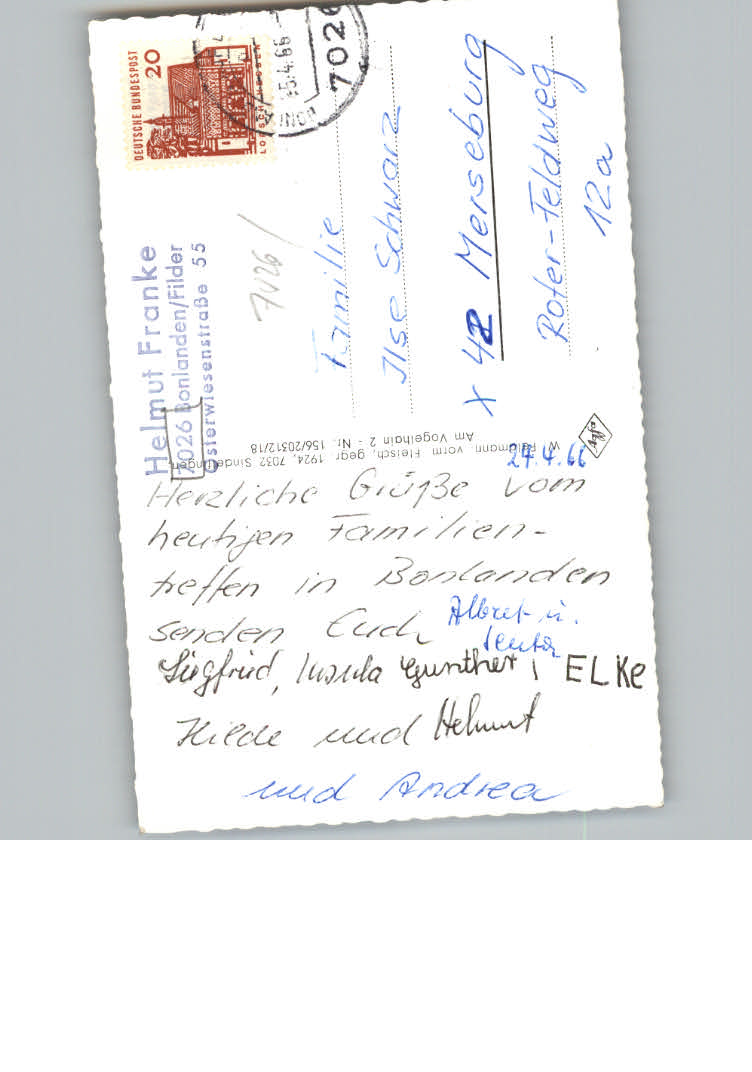 DEUTSCHE BUNDESPOST
20
LORSCH HESSEN
7026
Helmut Franke
7026 Bonlanden/Filder
Osterwiesenstraße 55
7026
Familie
Ilse Schwarz
X 42 Merseburg
Roter-Feldweg
12a
W. Feldmann, vorm. Fleisch, gegr. 1924, 7032 Sindelfingen
Am Vogelhain 2 - Nr. 156/20312/18
Agfa
24.4.66
Herzliche Grüße vom
heutigen Familien-
treffen in Bonlanden
senden Euch
Siegfried, Ursula Gunther, ELKE
Hilde und Helmut
und Andrea